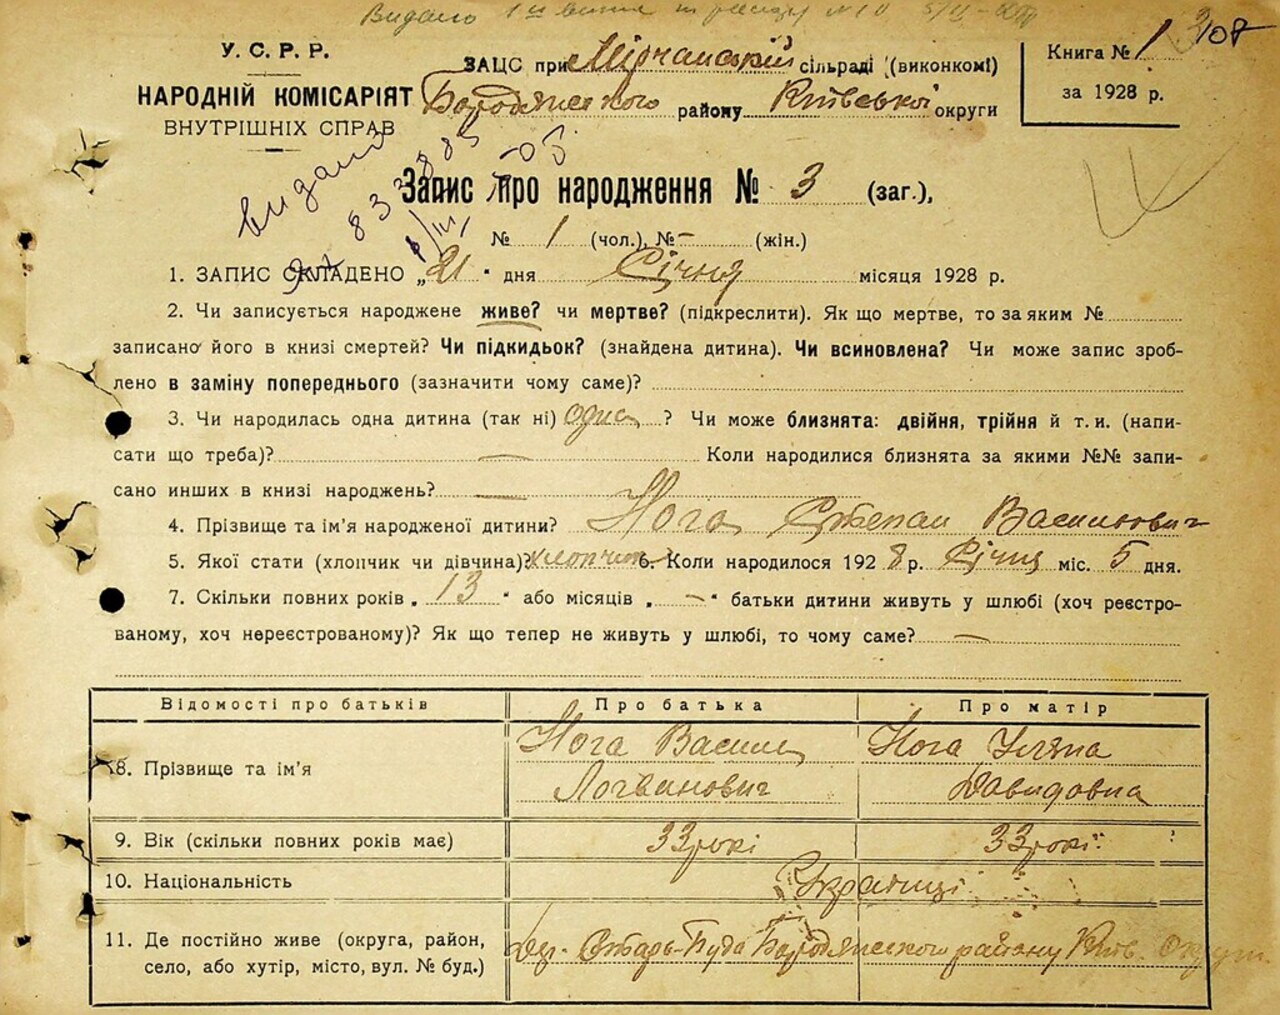 Видано
У. С. Р. Р.
НАРОДНІЙ КОМІСАРІЯТ
ВНУТРІШНІХ СПРАВ
ЗАЦС при Мірчанській сільраді (виконкомі)
Бородянського району Київської округи
Книга № 1
за 1928 р.
видано
Запис про народження № 3 (заг.),
№ 1 (чол.), № – (жін.)
1. ЗАПИС СКЛАДЕНО „21" дня Січня місяця 1928 р.
2. Чи записується народжене живе? чи мертве? (підкреслити). Як що мертве, то за яким №
записано його в книзі смертей? Чи підкидьок? (знайдена дитина). Чи всиновлена? Чи може запис зроб-
лено в заміну попереднього (зазначити чому саме)?
3. Чи народилась одна дитина (так ні) одна ? Чи може близнята: двійня, трійня й т. и. (напи-
сати що треба)? — Коли народилися близнята за якими №№ запи-
сано инших в книзі народжень? —
4. Прізвище та ім'я народженої дитини? Нога Стєпан Василович
5. Якої стати (хлопчик чи дівчина)? хлопчик 6. Коли народилося 1928 р. Січня міс. 5 дня.
7. Скільки повних років „ 13 " або місяців „ — " батьки дитини живуть у шлюбі (хоч реєстро-
ваному, хоч нереєстрованому)? Як що тепер не живуть у шлюбі, то чому саме? —
Відомості про батьків Про батька Про матір
8. Прізвище та ім'я Нога Васил Логвинович Нога Уляна Давидовна
9. Вік (скільки повних років має) 33 рокі 33 рокі
10. Національність Українці
11. Де постійно живе (округа, район,
село, або хутір, місто, вул. № буд.) дер. Стара-Буда Бородянського району Київ. Округи